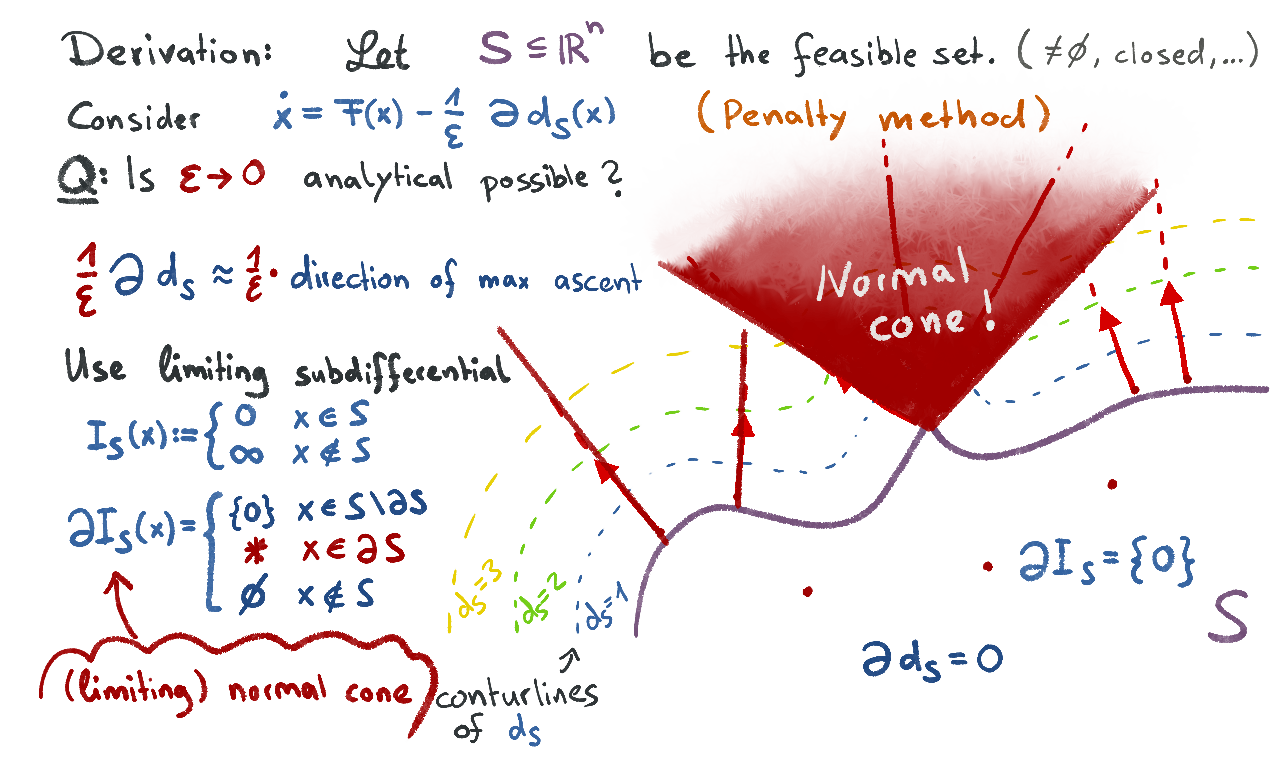 Derivation: Let S ⊆ ℝⁿ be the feasible set. (≠∅, closed,...)
Consider ẋ = F(x) - 1/ε ∂d_S(x) (Penalty method)
Q: Is ε→0 analytical possible?
1/ε ∂d_S ≈ 1/ε · direction of max ascent
Normal
cone!
Use limiting subdifferential
I_S(x):= { 0 x ∈ S
∞ x ∉ S
∂I_S(x)= { {0} x ∈ S\∂S
* x ∈ ∂S
∅ x ∉ S
(limiting) normal cone
d_S=3
d_S=2
d_S=1
conturlines
of d_S
∂I_S = {0}
S
∂d_S = 0